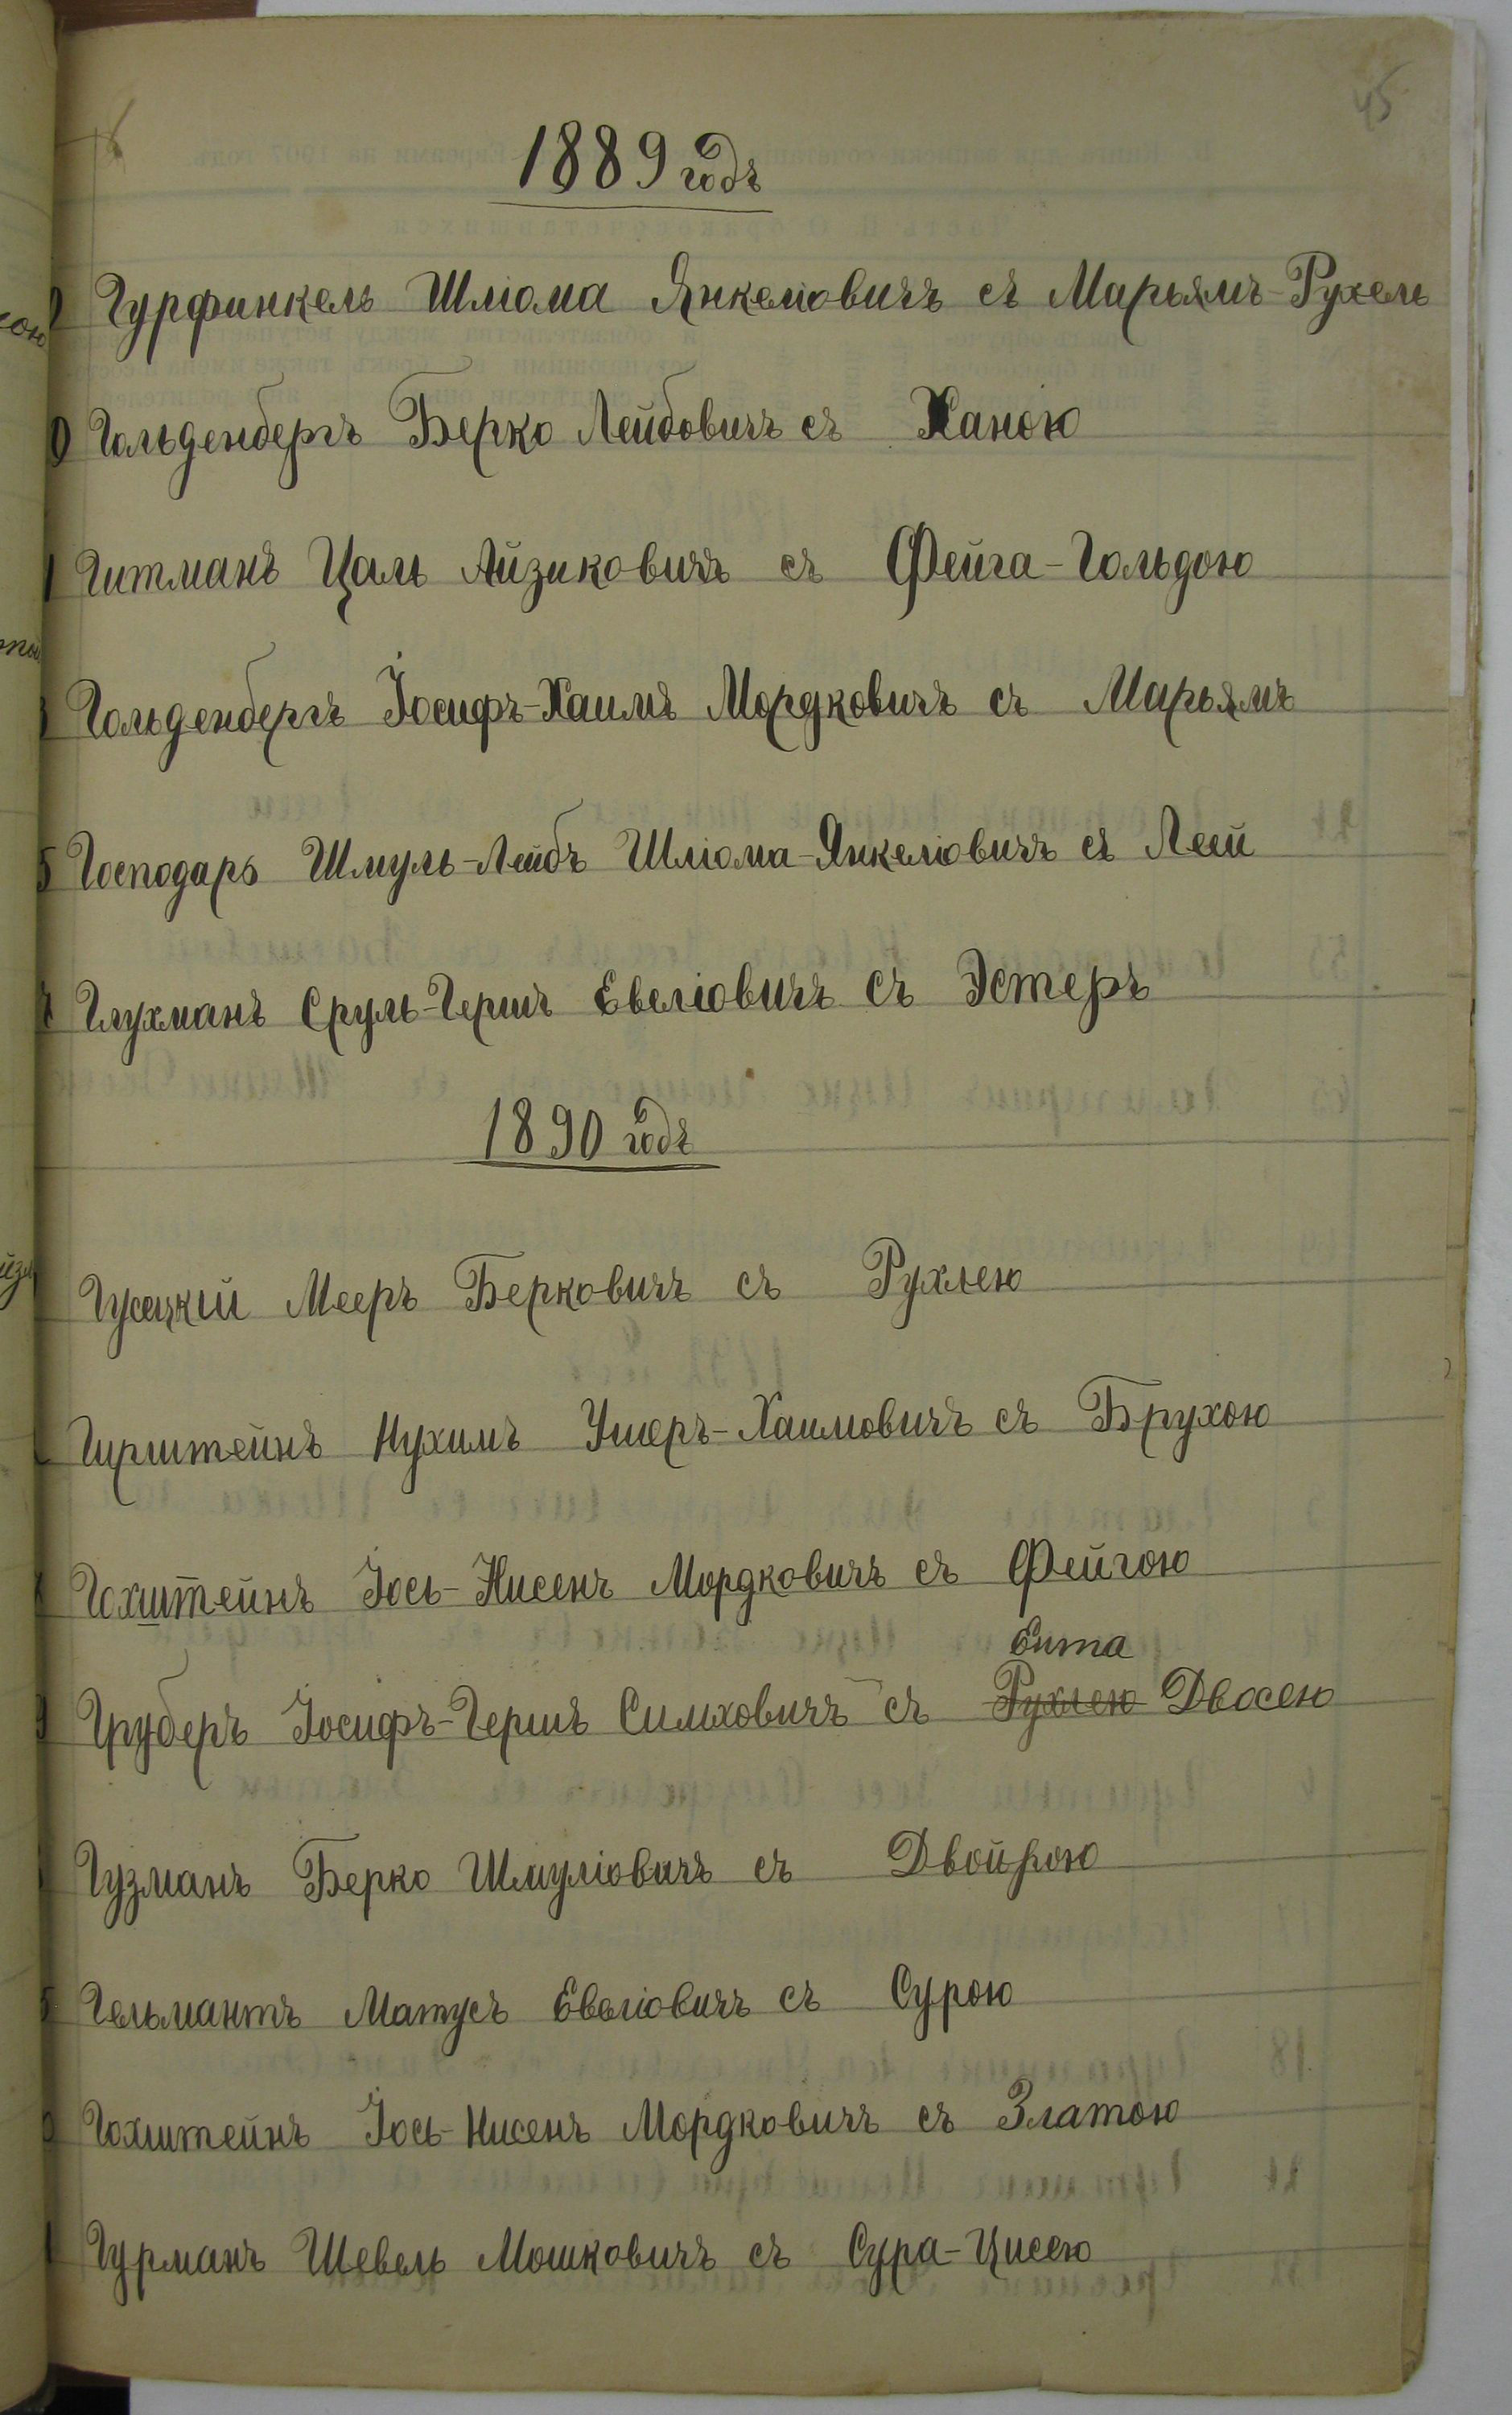 45
1889 годъ
Гурфинкель Шлiома Янкелiовичъ съ Марьямъ-Рухель
Гольденбергъ Берко Лейбовичъ съ Ханою
Гитманъ Цаль Айзиковичъ съ Фейга-Гольдою
Гольденбергъ Іосифъ-Хаимъ Мордковичъ съ Марьямъ
Господарь Шмуль-Лейбъ Шлiома-Янкелiовичъ съ Леей
Глухманъ Сруль-Гершъ Евелiовичъ съ Эстеръ
1890 годъ
Гусяцкiй Мееръ Берковичъ съ Рухлею
Гирштейнъ Нухимъ Ушеръ-Хаимовичъ съ Брухою
Гохштейнъ Іось-Нисенъ Мордковичъ съ Фейгою
Ента
Груберъ Іосифъ-Гершъ Симховичъ съ Рухлею Двосею
Гузманъ Берко Шмулiовичъ съ Двойрою
Гельмантъ Матусъ Евелiовичъ съ Сурою
Гохштейнъ Іось-Нисенъ Мордковичъ съ Златою
Гурманъ Шевель Мошковичъ съ Сура-Цисею